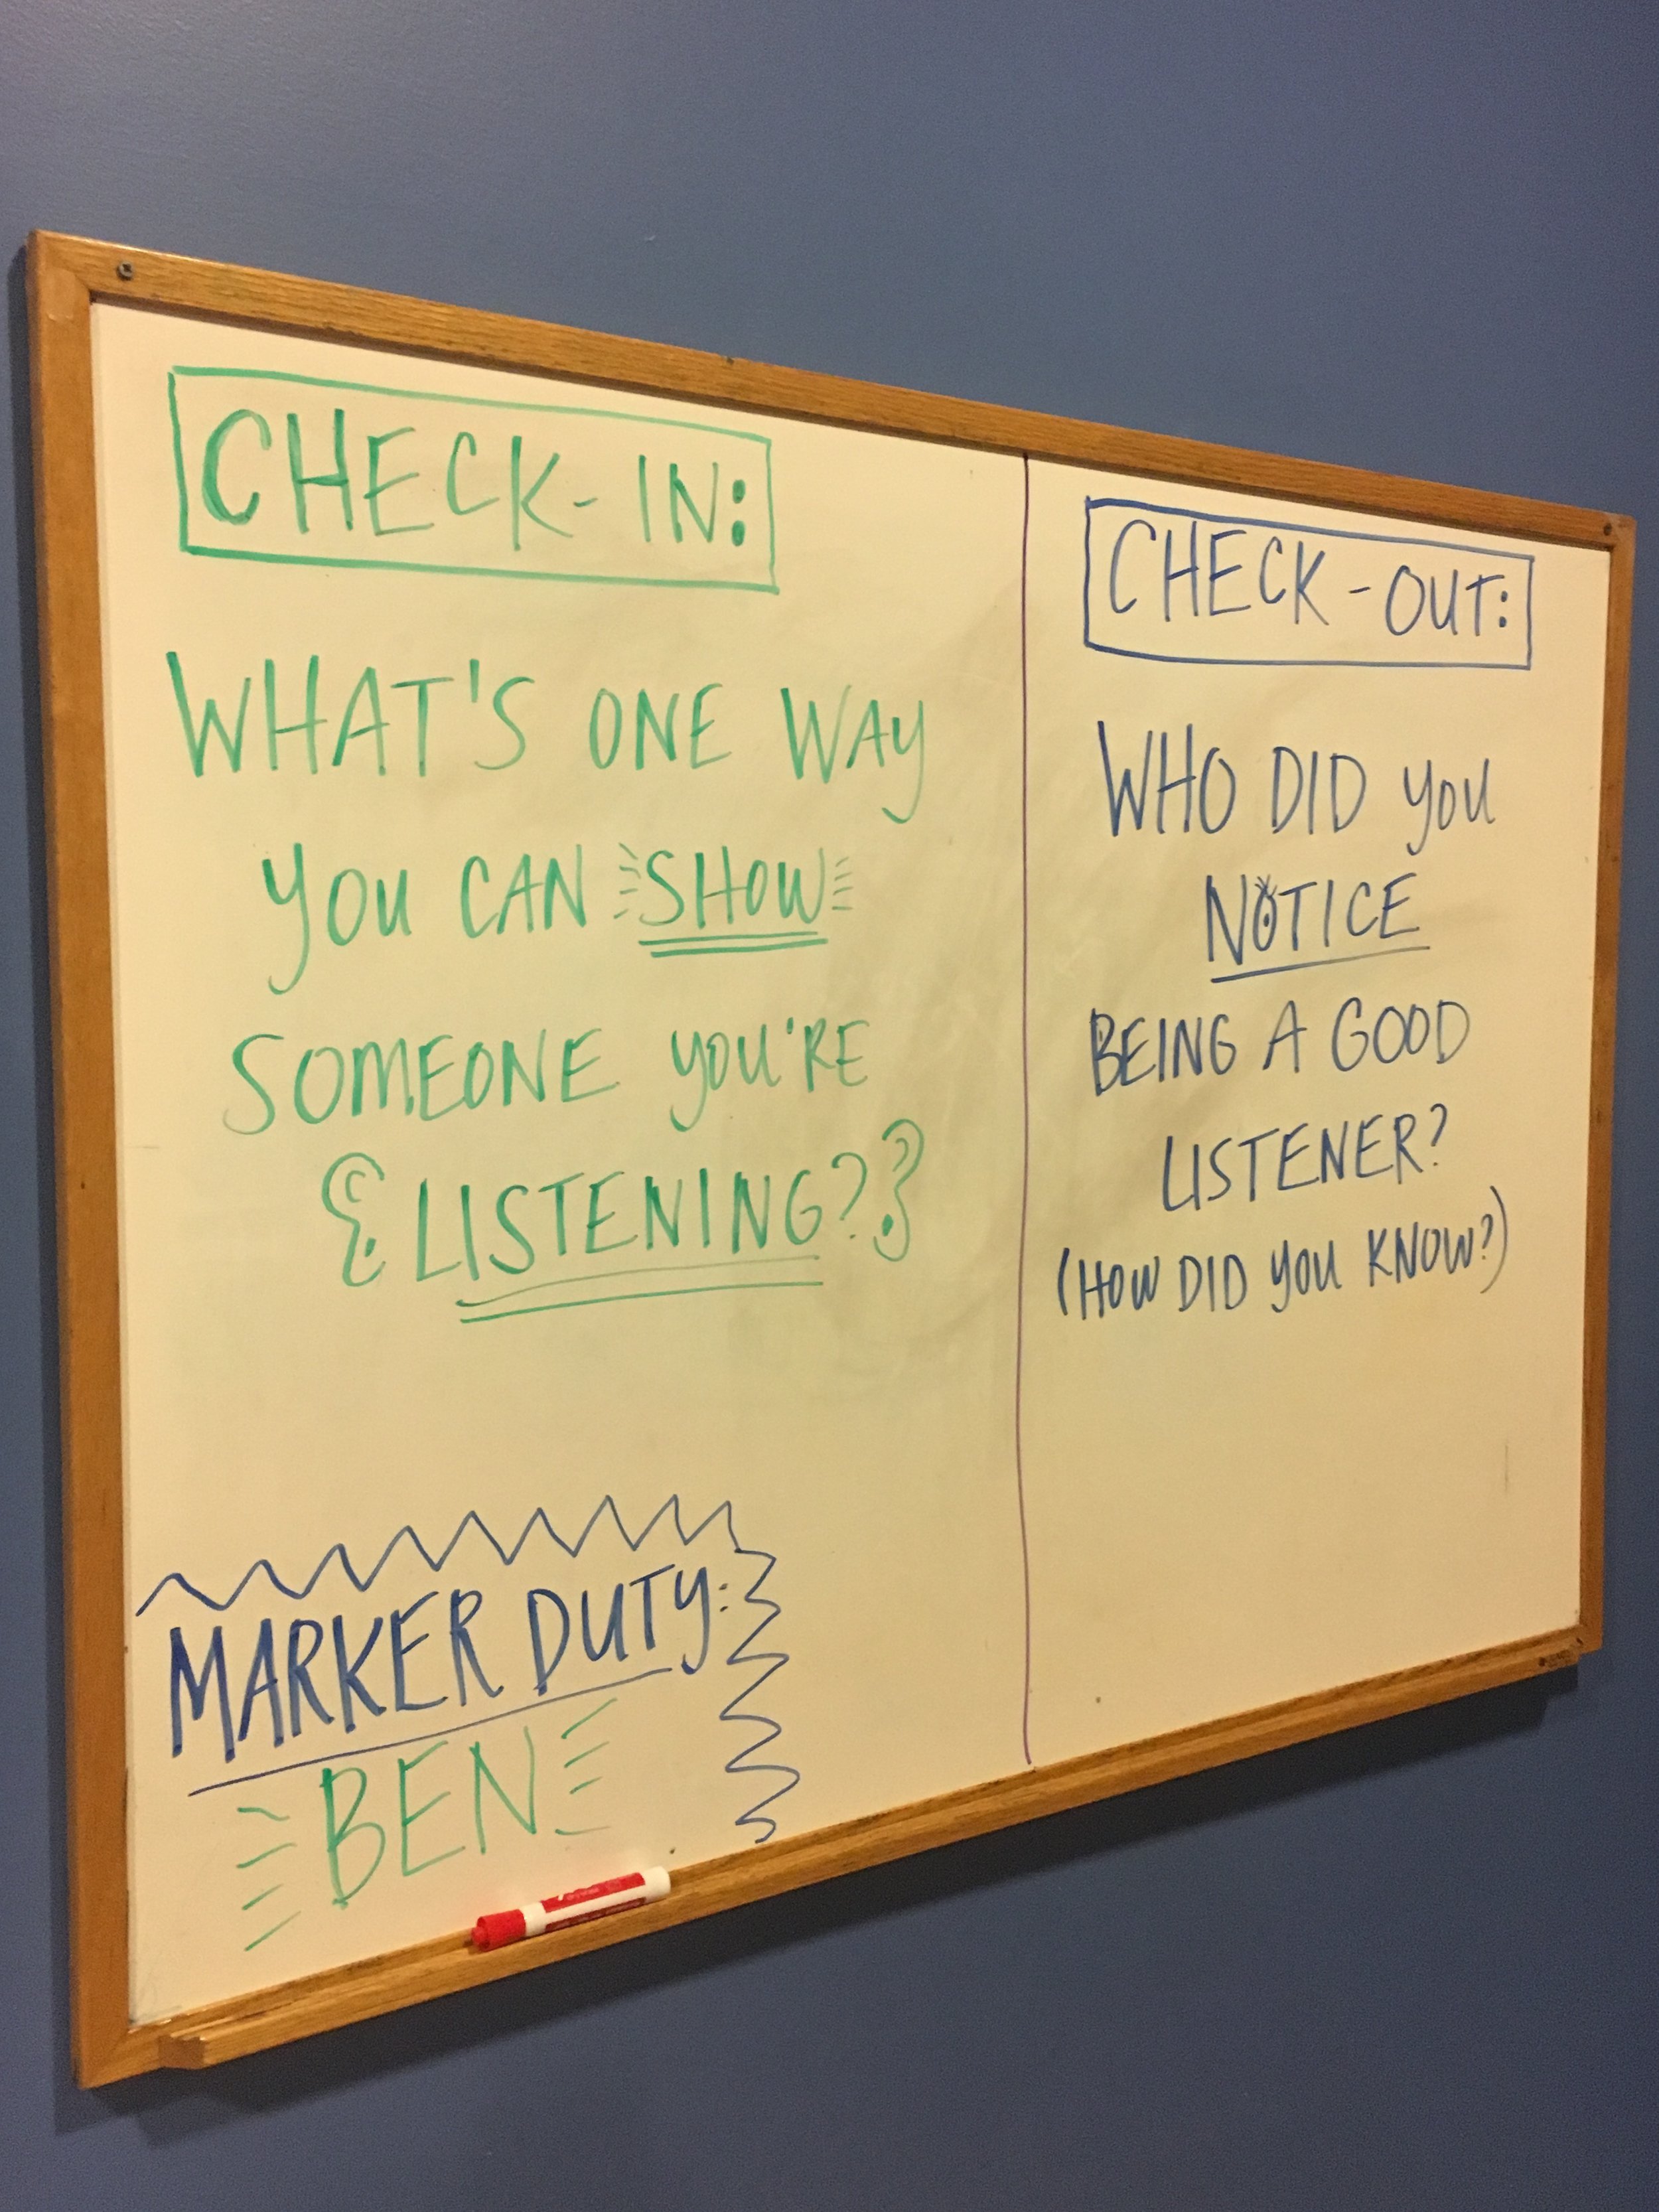 CHECK-IN:
WHAT'S ONE WAY
YOU CAN SHOW
SOMEONE YOU'RE
LISTENING?
MARKER DUTY:
BEN
CHECK-OUT:
WHO DID YOU
NOTICE
BEING A GOOD
LISTENER?
(HOW DID YOU KNOW?)